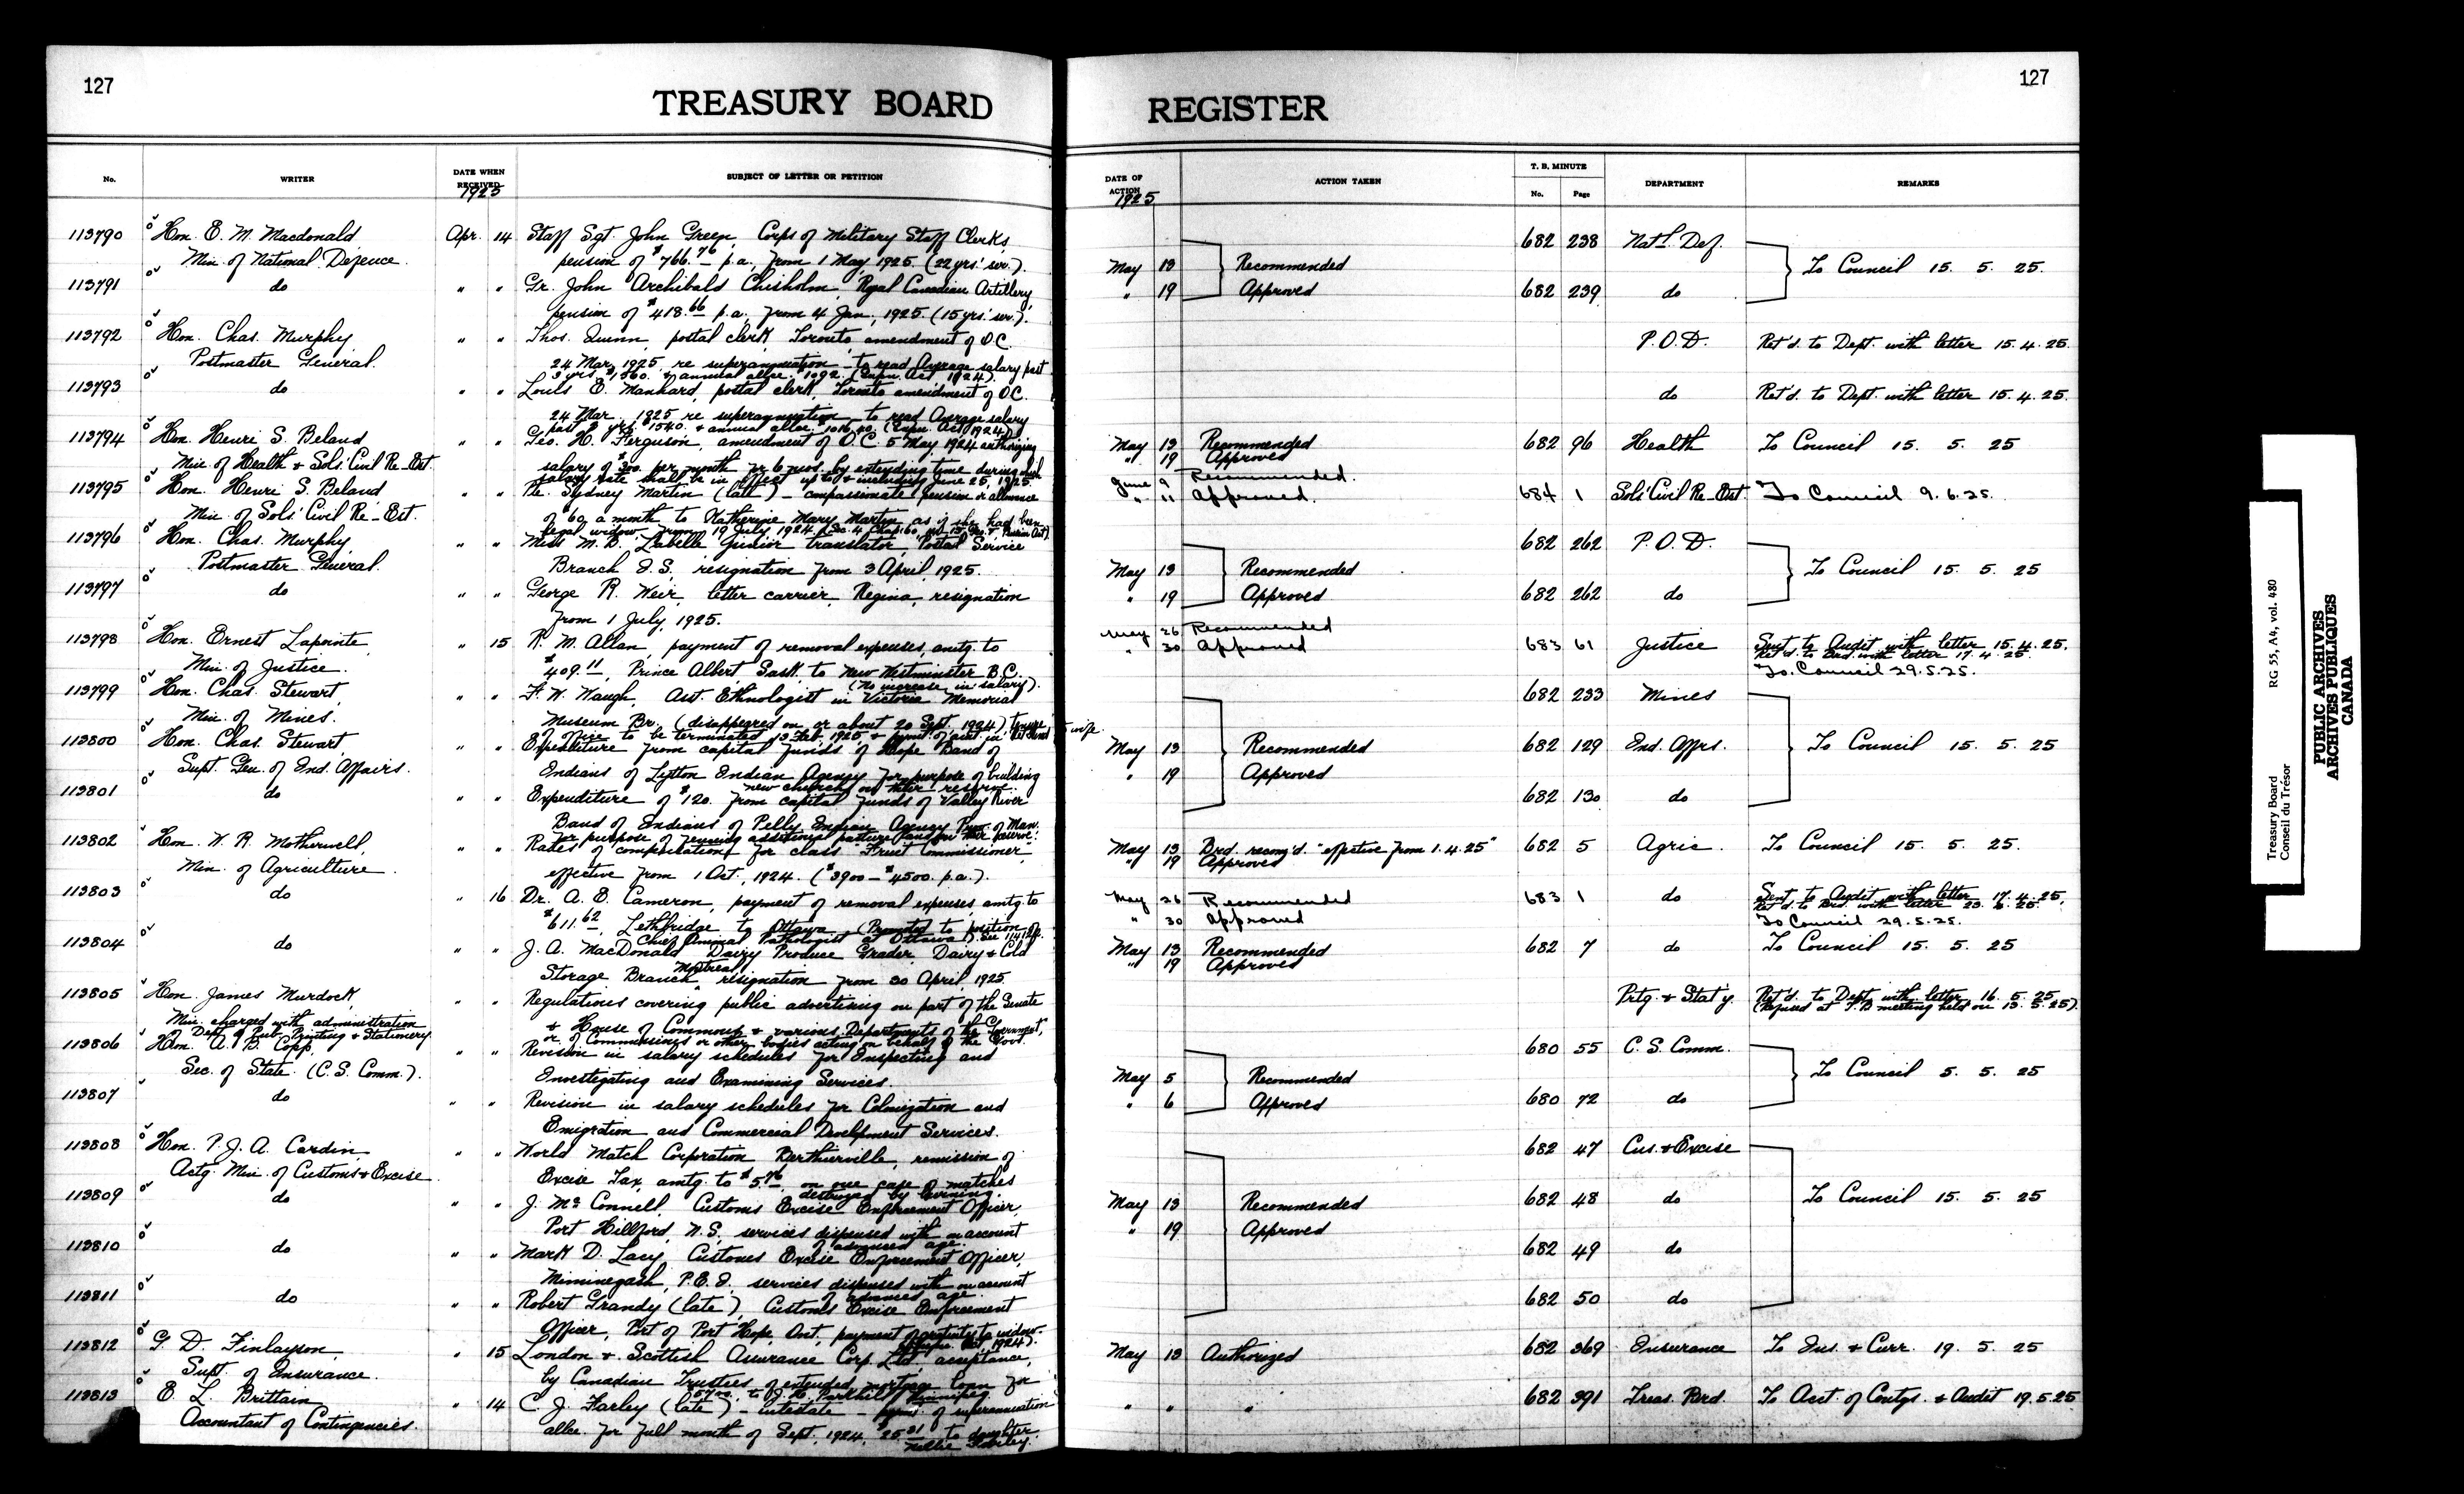 127
TREASURY BOARD
No.
WRITER
DATE WHEN RECEIVED
1925
SUBJECT OF LETTER OR PETITION
113790 Hon. E. M. Macdonald Apr. 14 Staff Sgt. John Green, Corps of Military Staff Clerks,
Min. of National Defence. pension of $766.76 p.a. from 1 May, 1925. (22 yrs' ser.).
113791 do " " Gr. John Archibald Chisholm, Royal Canadian Artillery,
pension of $418.66 p.a. from 4 Jan., 1925. (15 yrs' ser.).
113792 Hon. Chas. Murphy, " " Thos. Quinn, postal clerk, Toronto amendment of O.C.
Postmaster General. 24 Mar., 1925, re superannuation - to read Average salary past
3 yrs. $1560. & annual allce. 1092. (Supn. Act 1924).
113793 do " " Louis E. Manhard, postal clerk, Toronto amendment of O.C.
24 Mar., 1925 re superannuation - to read Average salary
past 3 yrs. $1540. & annual allce. $1016.40. (Supn. Act 1924)
113794 Hon. Henri S. Beland " " Geo. H. Ferguson, amendment of O.C. 5 May, 1924 authorizing
Min. of Health & Sols' Civil Re-Est. salary of $300. per month for 6 mos. by extending time during which
salary rate shall be in effect up to & including June 25, 1925.
113795 Hon. Henri S. Beland, " " Pte. Sydney Martin (late) - compassionate pension or allowance
Min. of Sols' Civil Re-Est. of $60. a month to Katherine Mary Martin as if she had been
legal widow, from 19 July, 1924
113796 Hon. Chas. Murphy, " " Miss M. B. Labelle, junior translator, Postal Service
Postmaster General. Branch I.S., resignation from 3 April, 1925.
113797 do " " George R. Weir, letter carrier, Regina, resignation
from 1 July, 1925.
113798 Hon. Ernest Lapointe, " 15 R. M. Allan, payment of removal expenses, amtg. to
Min. of Justice. $409.11, Prince Albert Sask. to New Westminster B.C.
(No increase in salary).
113799 Hon. Chas. Stewart, " " F. W. Waugh, Asst. Ethnologist in Victoria Memorial
Min. of Mines. Museum Br. (disappeared on or about 20 Sept. 1924) tenure
of office to be terminated 13 Feb. 1925 & to wife.
113800 Hon. Chas. Stewart, " " Expenditure from capital funds of Hope Band of
Supt. Gen. of Ind. Affairs. Indians of Lytton Indian Agency for purpose of building
new church on their reserve.
113801 do " " Expenditure of $120. from capital funds of Valley River
Band of Indians of Pelly Indian Agency Prov. of Man.
for purpose of fencing additional pasture land on their reserve.
113802 Hon. W. R. Motherwell, " " Rates of compensation for class "Fruit Commissioner"
Min. of Agriculture. effective from 1 Oct., 1924. ($3900 - $4500. p.a.).
113803 do " 16 Dr. A. E. Cameron, payment of removal expenses, amtg. to
$611.62, Lethbridge to Ottawa. (Promoted to position of
Chief Animal Pathologist at Ottawa).
113804 do " " J. A. MacDonald, Dairy Produce Grader, Dairy & Cold
Storage Branch, Montreal, resignation from 30 April, 1925.
113805 Hon. James Murdock, " " Regulations covering public advertising on part of the Senate
Min. charged with administration & House of Commons & various Departments of the Government,
of Dept. of Pub. Printing & Stationery. or of Commissions or other bodies acting on behalf of the Govt.
113806 Hon. A. B. Copp, " " Revision in salary schedules for Inspecting and
Sec. of State (C.S. Comm.). Investigating and Examining Services.
113807 do " " Revision in salary schedules for Colonization and
Emigration and Commercial Development Services.
113808 Hon. P. J. A. Cardin, " " World Match Corporation Berthierville, remission of
Actg. Min. of Customs & Excise. Excise Tax, amtg. to $5.76, on one case of matches
destroyed by burning.
113809 do " " J. McConnell, Customs Excise Enforcement Officer,
Port Hillford, N.S. services dispensed with on account
of advanced age.
113810 do " " Mark D. Lacy, Customs Excise Enforcement Officer,
Miminegash, P.E.I. services dispensed with on account
of advanced age.
113811 do " " Robert Grandy (late), Customs Excise Enforcement
Officer, Port of Port Hope, Ont., payment of gratuity to widow.
(Supn. Act, 1924).
113812 G. D. Finlayson, " 15 London & Scottish Assurance Corp. Ltd. acceptance,
Supt. of Insurance. by Canadian Trustees of extended mortgage loan for
to J. H. Parkhill, Winnipeg.
113813 E. L. Brittain " 14 C. J. Farley (late) - intestate - pymt. of superannuation
Accountant of Contingencies. allce. for full month of Sept. 1924, $25.01 to daughter
Nellie Farley.
127
REGISTER
DATE OF ACTION
1925
ACTION TAKEN
T. B. MINUTE
No. Page
DEPARTMENT
REMARKS
682 238 Nat'l. Def.
May 13 Recommended To Council 15. 5. 25.
" 19 Approved 682 239 do
P.O.D. Ret'd. to Dept. with letter 15.4.25.
do Ret'd. to Dept. with letter 15.4.25.
May 13 Recommended 682 96 Health To Council 15. 5. 25
" 19 Approved
June 9 Recommended.
" 11 Approved. 684 1 Sols' Civil Re-Est. To Council 9.6.25.
682 262 P.O.D.
May 13 Recommended To Council 15. 5. 25
" 19 Approved 682 262 do
May 26 Recommended
" 30 Approved 683 61 Justice Sent to Audit with letter 15.4.25.
Ret'd. to Brd. with letter 17.4.25.
To Council 29.5.25.
682 233 Mines
May 13 Recommended 682 129 Ind. Affrs. To Council 15. 5. 25
" 19 Approved
682 130 do
May 13 Brd. recom'd. "effective from 1.4.25" 682 5 Agric. To Council 15. 5. 25.
" 19 Approved
May 26 Recommended 683 1 do Sent to Audit with letter 17.4.25.
" 30 Approved Ret'd. to Brd. with letter
To Council 29.5.25.
May 13 Recommended 682 7 do To Council 15. 5. 25
" 19 Approved
Prtg. & Stat'y. Ret'd. to Dept. with letter 16. 5. 25
(Refused at T.B. meeting held on 13.5.25).
680 55 C. S. Comm.
May 5 Recommended To Council 5. 5. 25
" 6 Approved 680 72 do
682 47 Cus. & Excise
May 13 Recommended 682 48 do To Council 15. 5. 25
" 19 Approved
682 49 do
682 50 do
May 13 Authorized 682 369 Insurance To Ins. & Curr. 19. 5. 25
" " " 682 391 Treas. Brd. To Acct. of Contgs. & Audit 19.5.25
Treasury Board
Conseil du Trésor
RG 55, A4, vol. 480
PUBLIC ARCHIVES
ARCHIVES PUBLIQUES
CANADA